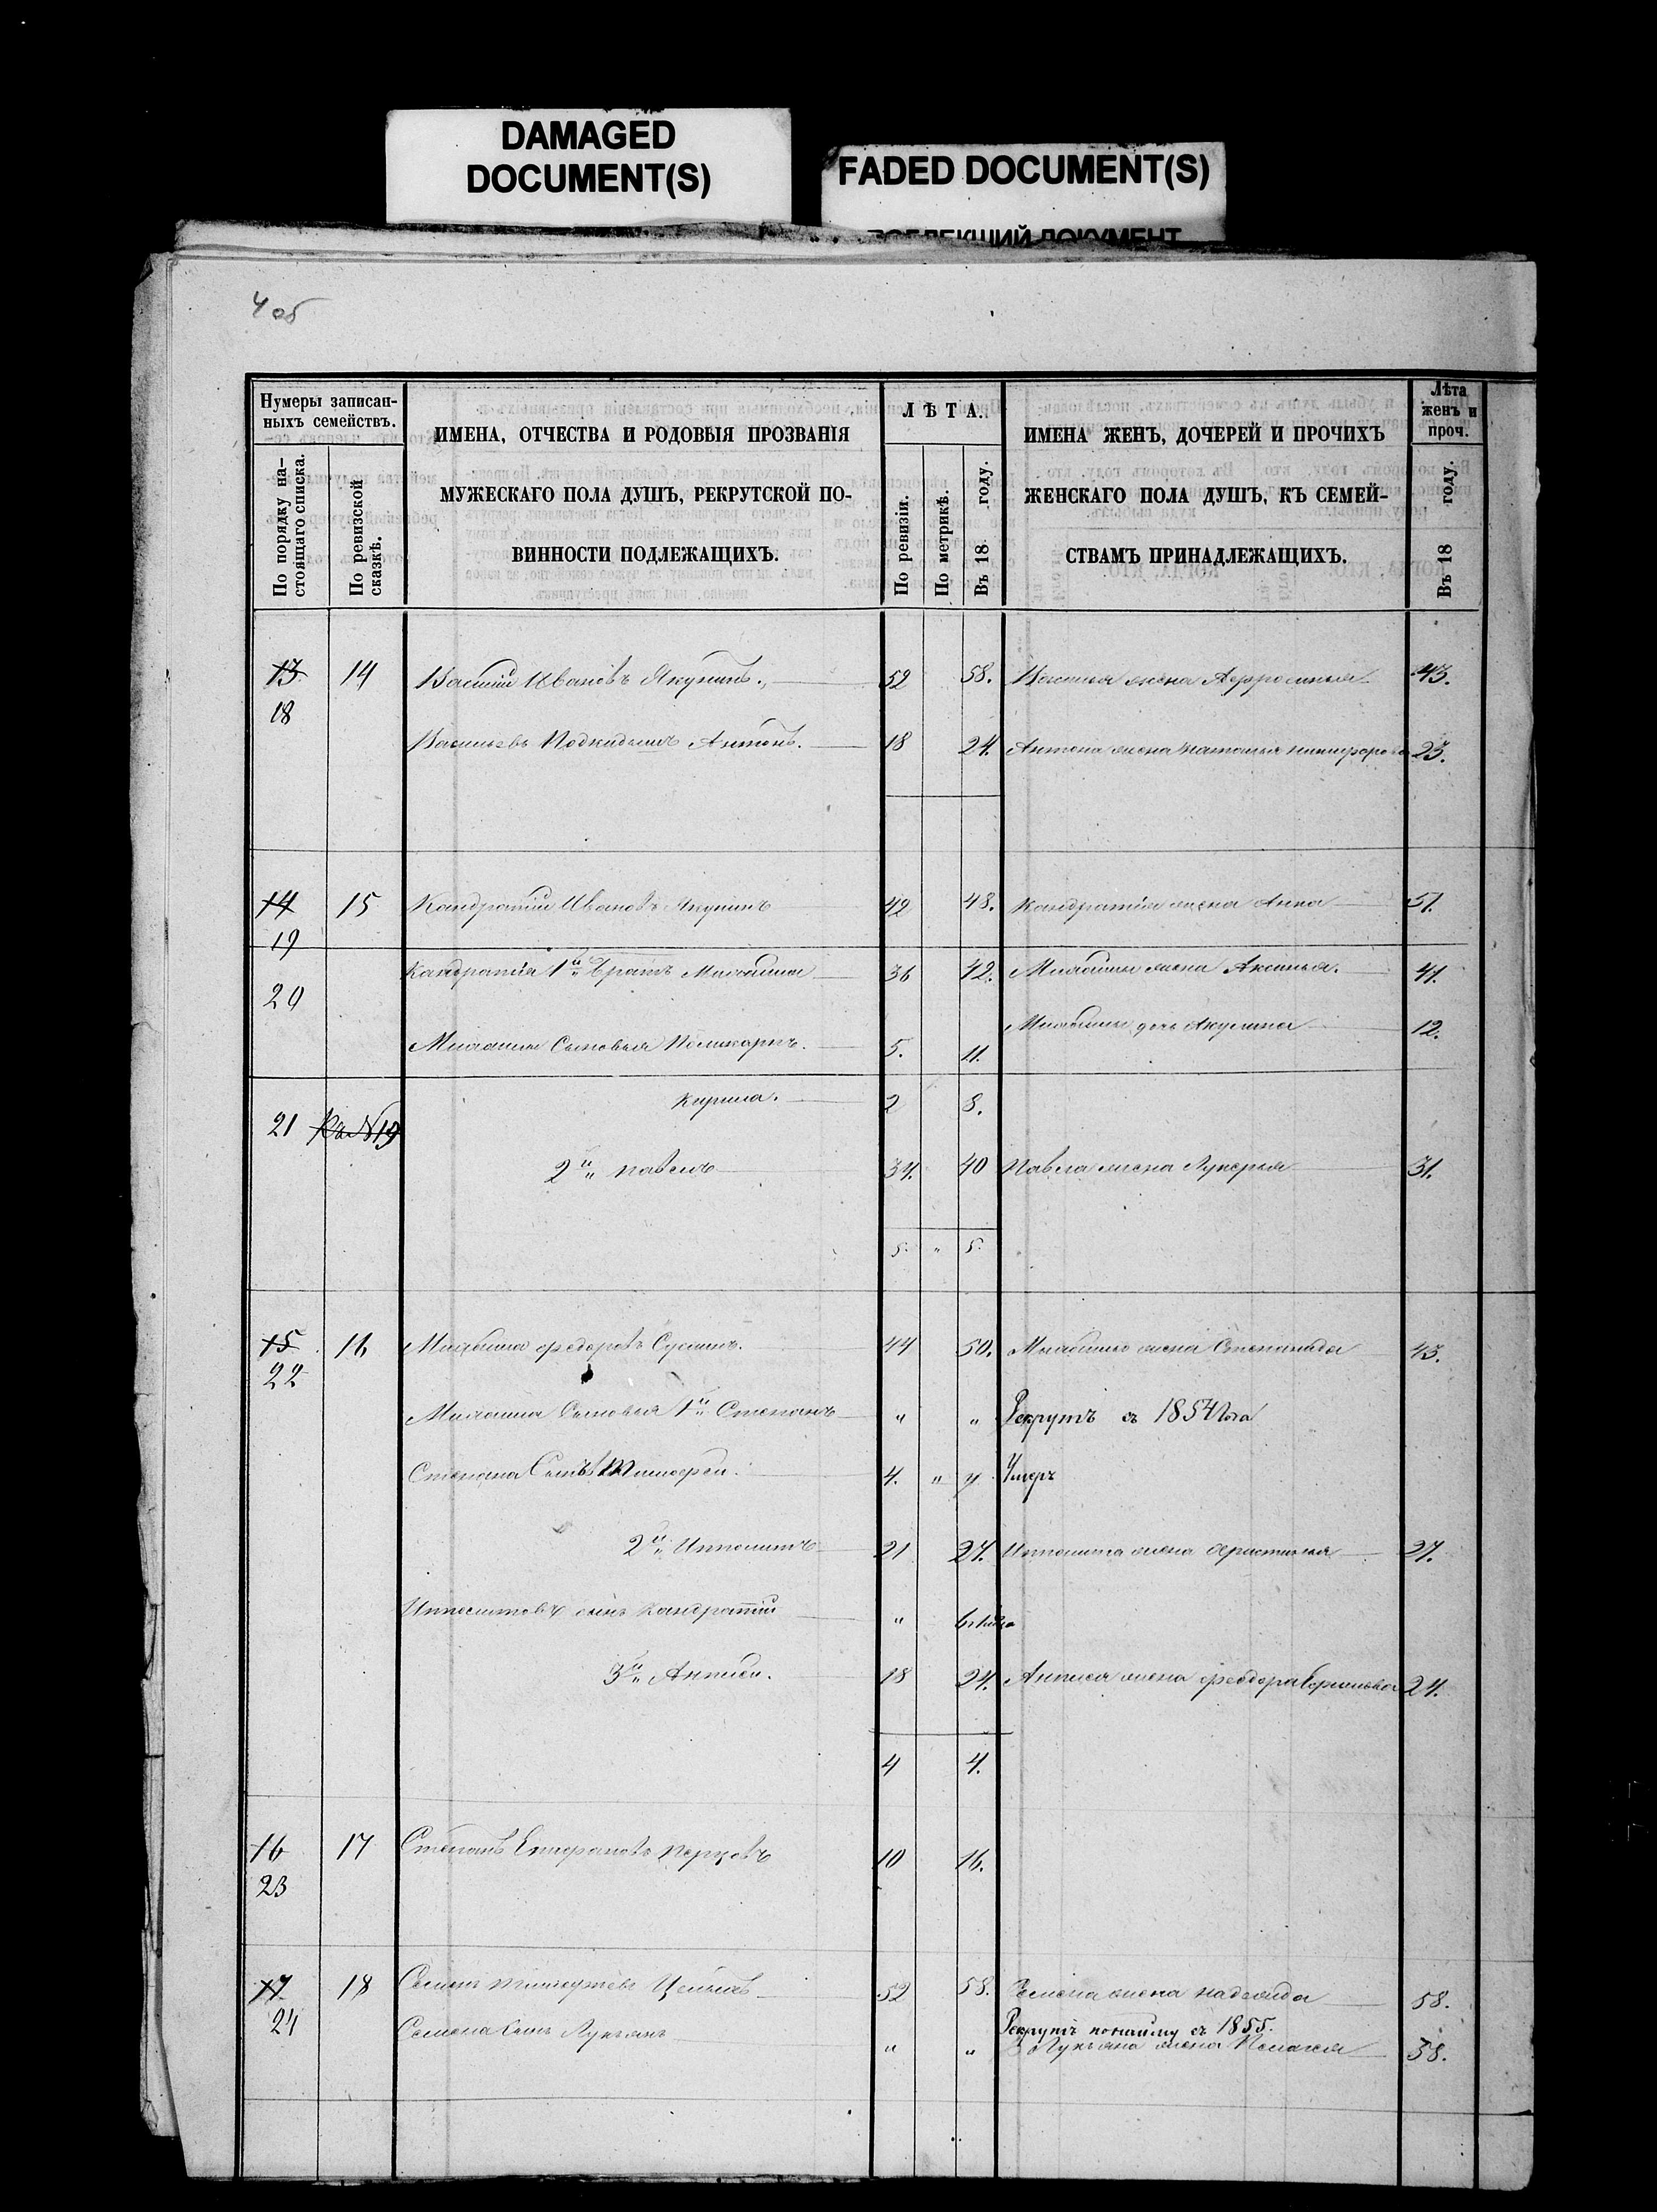 DAMAGED
DOCUMENT(S)
FADED DOCUMENT(S)
4 об
Нумеры записан-
ныхъ семействъ.
По порядку на-
стоящаго списка.
По ревизской
сказкѣ.
ИМЕНА, ОТЧЕСТВА И РОДОВЫЯ ПРОЗВАНІЯ
МУЖЕСКАГО ПОЛА ДУШЪ, РЕКРУТСКОЙ ПО-
ВИННОСТИ ПОДЛЕЖАЩИХЪ.
ЛѢТА.
По ревизіи.
По метрикѣ.
Въ 18 году.
ИМЕНА ЖЕНЪ, ДОЧЕРЕЙ И ПРОЧИХЪ
ЖЕНСКАГО ПОЛА ДУШЪ, КЪ СЕМЕЙ-
СТВАМЪ ПРИНАДЛЕЖАЩИХЪ.
Лѣта
женъ и
проч.
Въ 18 году.
13 14 Василій Ивановъ Якунинъ. 52 58. Василья жена 43.
18
Васильевъ Подкидышъ Антонъ. 18 24. Антона жена Наталья Никифорова 23.
14 15 Кандратій Ивановъ Якунинъ 42 48. Кандратія жена Анна 51.
19
Кандратія 1й братъ Михайла 36 42. Михайлы жена Аксинья. 41.
20
Михайлы дочь Акулина 12.
Михайлы Сыновья Поликарпъ. 5. 11.
Кирила. 2 8.
21 Къ №19
2й Павелъ 34. 40 Павла жена Лукерья 31.
5. " 5.
15 16 Михайла Федоровъ 44 50. Михайлы жена Степанида 43.
22
Михайла Сыновья 1й Степанъ " " Рекрутъ съ 1854 года
Степана Сынъ Тимофей. 4. " Умеръ
2й Ипполитъ 21 27. Ипполита жена 27.
Ипполитовъ сынъ Кандратій "
3й Антипъ. 18 24. Антипа жена Федора 24.
4 4.
16 17 Степанъ Епифановъ 10 16.
23
17 18 Семенъ 52 58. Семена жена Надежда 58.
24
Рекрутъ по найму съ 1855.
Семена Сынъ Лукьянъ " " Лукьяна жена Пелагея 38.